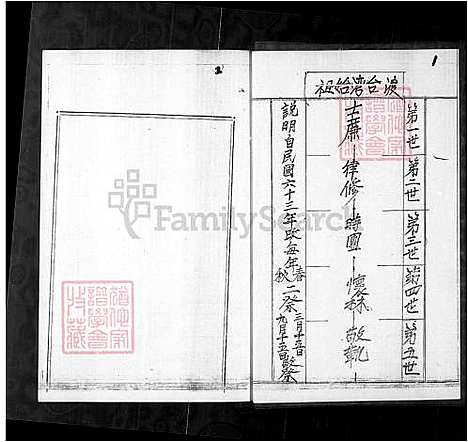 1
渡台湾始祖
第一世 第二世 第三世 第四世 第五世
士蔗－律修－時圃－懷秣 敬
說明自民國六十三年改每年春秋二祭 三月十五日 九月十五日
2
FamilySearch
譜學會
收藏